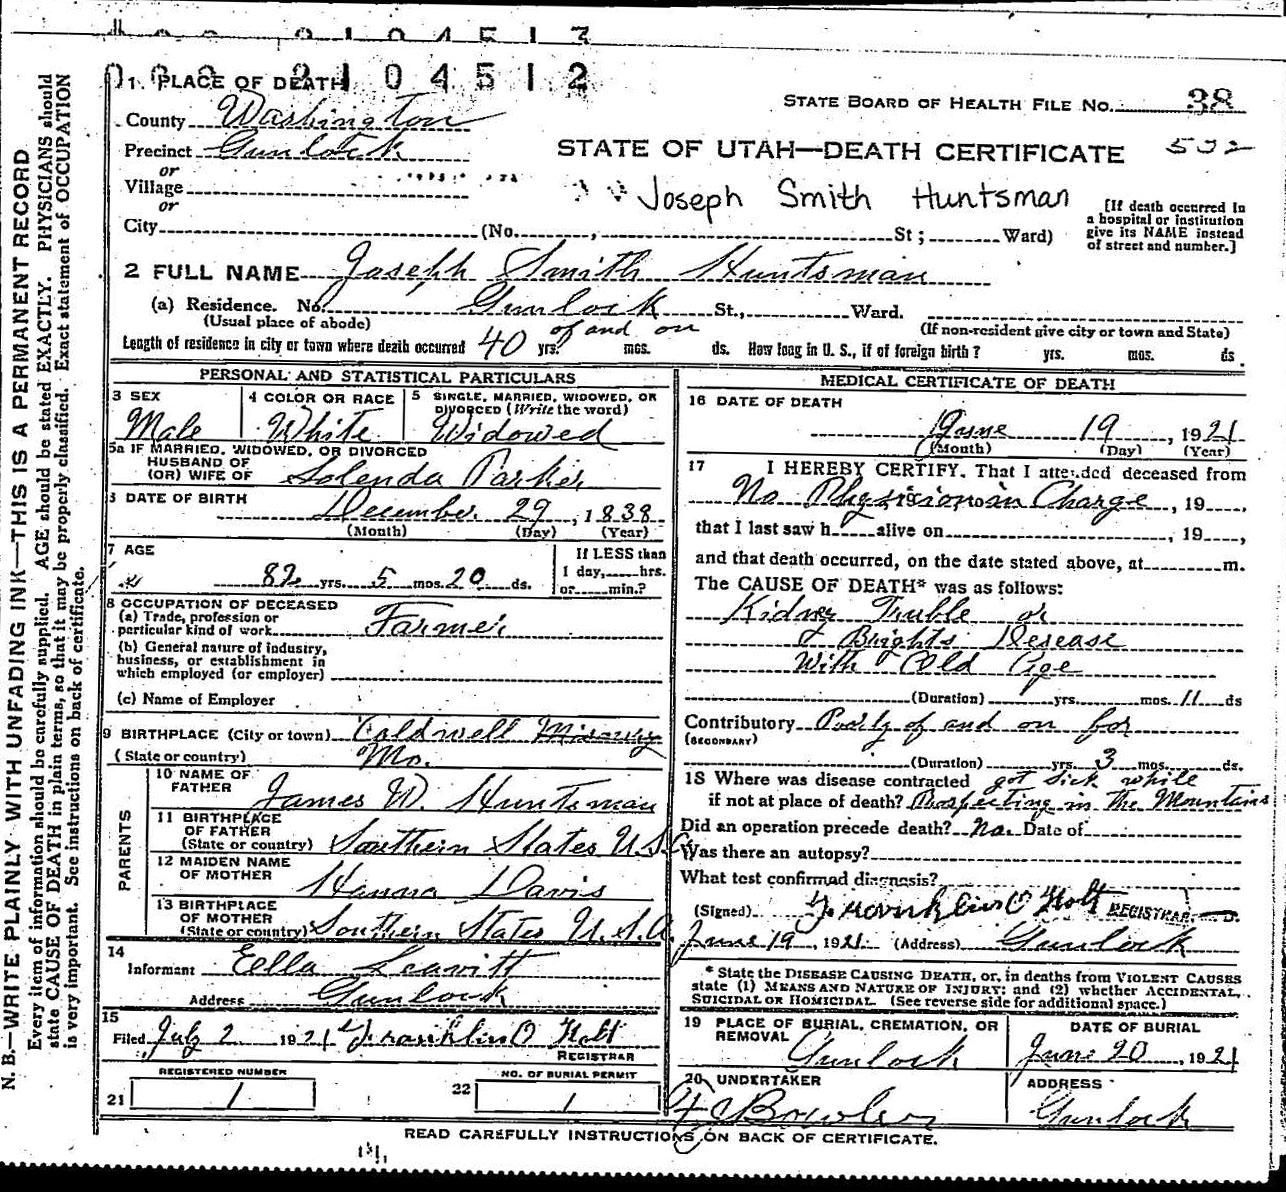 0 0 0 2 1 0 4 5 1 2
1. PLACE OF DEATH
STATE BOARD OF HEALTH FILE NO. 38
County Washington
Precinct Gunlock
STATE OF UTAH—DEATH CERTIFICATE 532
or
Village
or
Joseph Smith Huntsman
[If death occurred in a hospital or institution give its NAME instead of street and number.]
City (No. , St; Ward)
2 FULL NAME Joseph Smith Huntsman
(a) Residence. No. Gunlock St., Ward.
(Usual place of abode) (If non-resident give city or town and State)
of and on
Length of residence in city or town where death occurred 40 yrs. mos. ds. How long in U. S., if of foreign birth? yrs. mos. ds
PERSONAL AND STATISTICAL PARTICULARS
3 SEX
Male
4 COLOR OR RACE
White
5 SINGLE, MARRIED, WIDOWED, OR DIVORCED (Write the word)
Widowed
5a IF MARRIED, WIDOWED, OR DIVORCED
HUSBAND OF
(OR) WIFE OF Solenda Parker
6 DATE OF BIRTH
December 29, 1838
(Month) (Day) (Year)
7 AGE
82 yrs. 5 mos. 20 ds.
If LESS than
1 day, hrs.
or min.?
8 OCCUPATION OF DECEASED
(a) Trade, profession or
particular kind of work Farmer
(b) General nature of industry,
business, or establishment in
which employed (or employer)
(c) Name of Employer
9 BIRTHPLACE (City or town) Caldwell
(State or country) Mo.
PARENTS
10 NAME OF
FATHER James W. Huntsman
11 BIRTHPLACE
OF FATHER
(State or country) Southern States U.S.A
12 MAIDEN NAME
OF MOTHER Hanna Davis
13 BIRTHPLACE
OF MOTHER
(State or country) Southern States U.S.A.
14
Informant Eella Leavitt
Address Gunlock
15
Filed July 2 1921 Franklin O Holt
REGISTRAR
REGISTERED NUMBER
21 1
NO. OF BURIAL PERMIT
22 1
MEDICAL CERTIFICATE OF DEATH
16 DATE OF DEATH
June 19, 1921
(Month) (Day) (Year)
17 I HEREBY CERTIFY, That I attended deceased from
No Physicion in Charge, 19 ,
that I last saw h alive on , 19 ,
and that death occurred, on the date stated above, at m.
The CAUSE OF DEATH* was as follows:
Kidney Truble or
Brights Desease
With Old Age
(Duration) yrs. mos. 11 ds
Contributory Poorly of and on for
(SECONDARY)
(Duration) yrs. 3 mos. ds.
18 Where was disease contracted got sick while
if not at place of death? Prospecting in the Mountains
Did an operation precede death? No Date of
Was there an autopsy?
What test confirmed diagnosis?
(Signed) Franklin O Holt REGISTRAR
June 19, 1921 (Address) Gunlock
* State the DISEASE CAUSING DEATH, or, in deaths from VIOLENT CAUSES
state (1) MEANS AND NATURE OF INJURY; and (2) whether ACCIDENTAL,
SUICIDAL OR HOMICIDAL. (See reverse side for additional space.)
19 PLACE OF BURIAL, CREMATION, OR
REMOVAL Gunlock
DATE OF BURIAL
June 20, 1921
20 UNDERTAKER
F Bowler
ADDRESS
Gunlock
READ CAREFULLY INSTRUCTIONS ON BACK OF CERTIFICATE.
N. B.—WRITE PLAINLY WITH UNFADING INK—THIS IS A PERMANENT RECORD
Every item of information should be carefully supplied. AGE should be stated EXACTLY. PHYSICIANS should
state CAUSE OF DEATH in plain terms, so that it may be properly classified. Exact statement of OCCUPATION
is very important. See instructions on back of certificate.